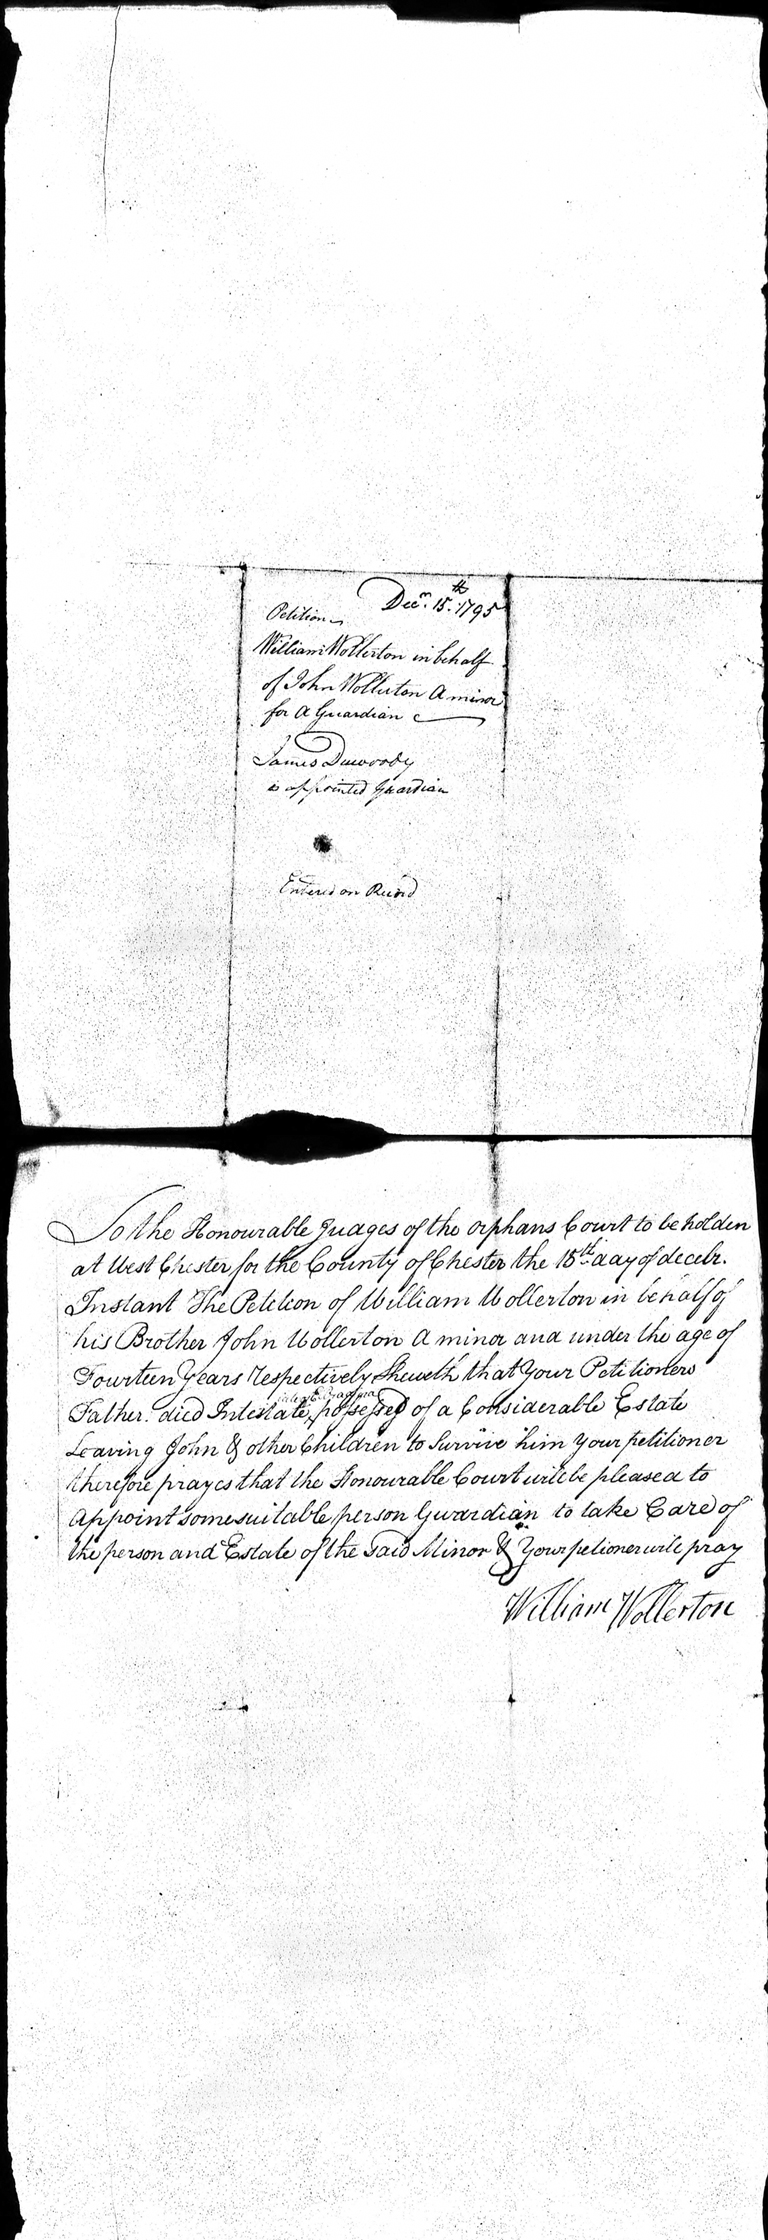 Decm. 15th. 1795
Petition
William Wollerton in behalf
of John Wollerton A minor
for A Guardian
James Dunwoody
is appointed Guardian
Entered on Record
To the Honourable Judges of the orphans Court to be holden
at West Chester for the County of Chester the 15th day of decebr.
Instant The Petition of William Wollerton in behalf of
his Brother John Wollerton A minor and under the age of
Fourteen Years respectively Sheweth that Your Petitioners
Father died Intestate, possessed of a Considerable Estate
Leaving John & other Children to Survive him Your petitioner
therefore prayes that the Honourable Court will be pleased to
Appoint some suitable person Guardian to take Care of
the person and Estate of the Said Minor & Your petioner will pray
William Wollerton